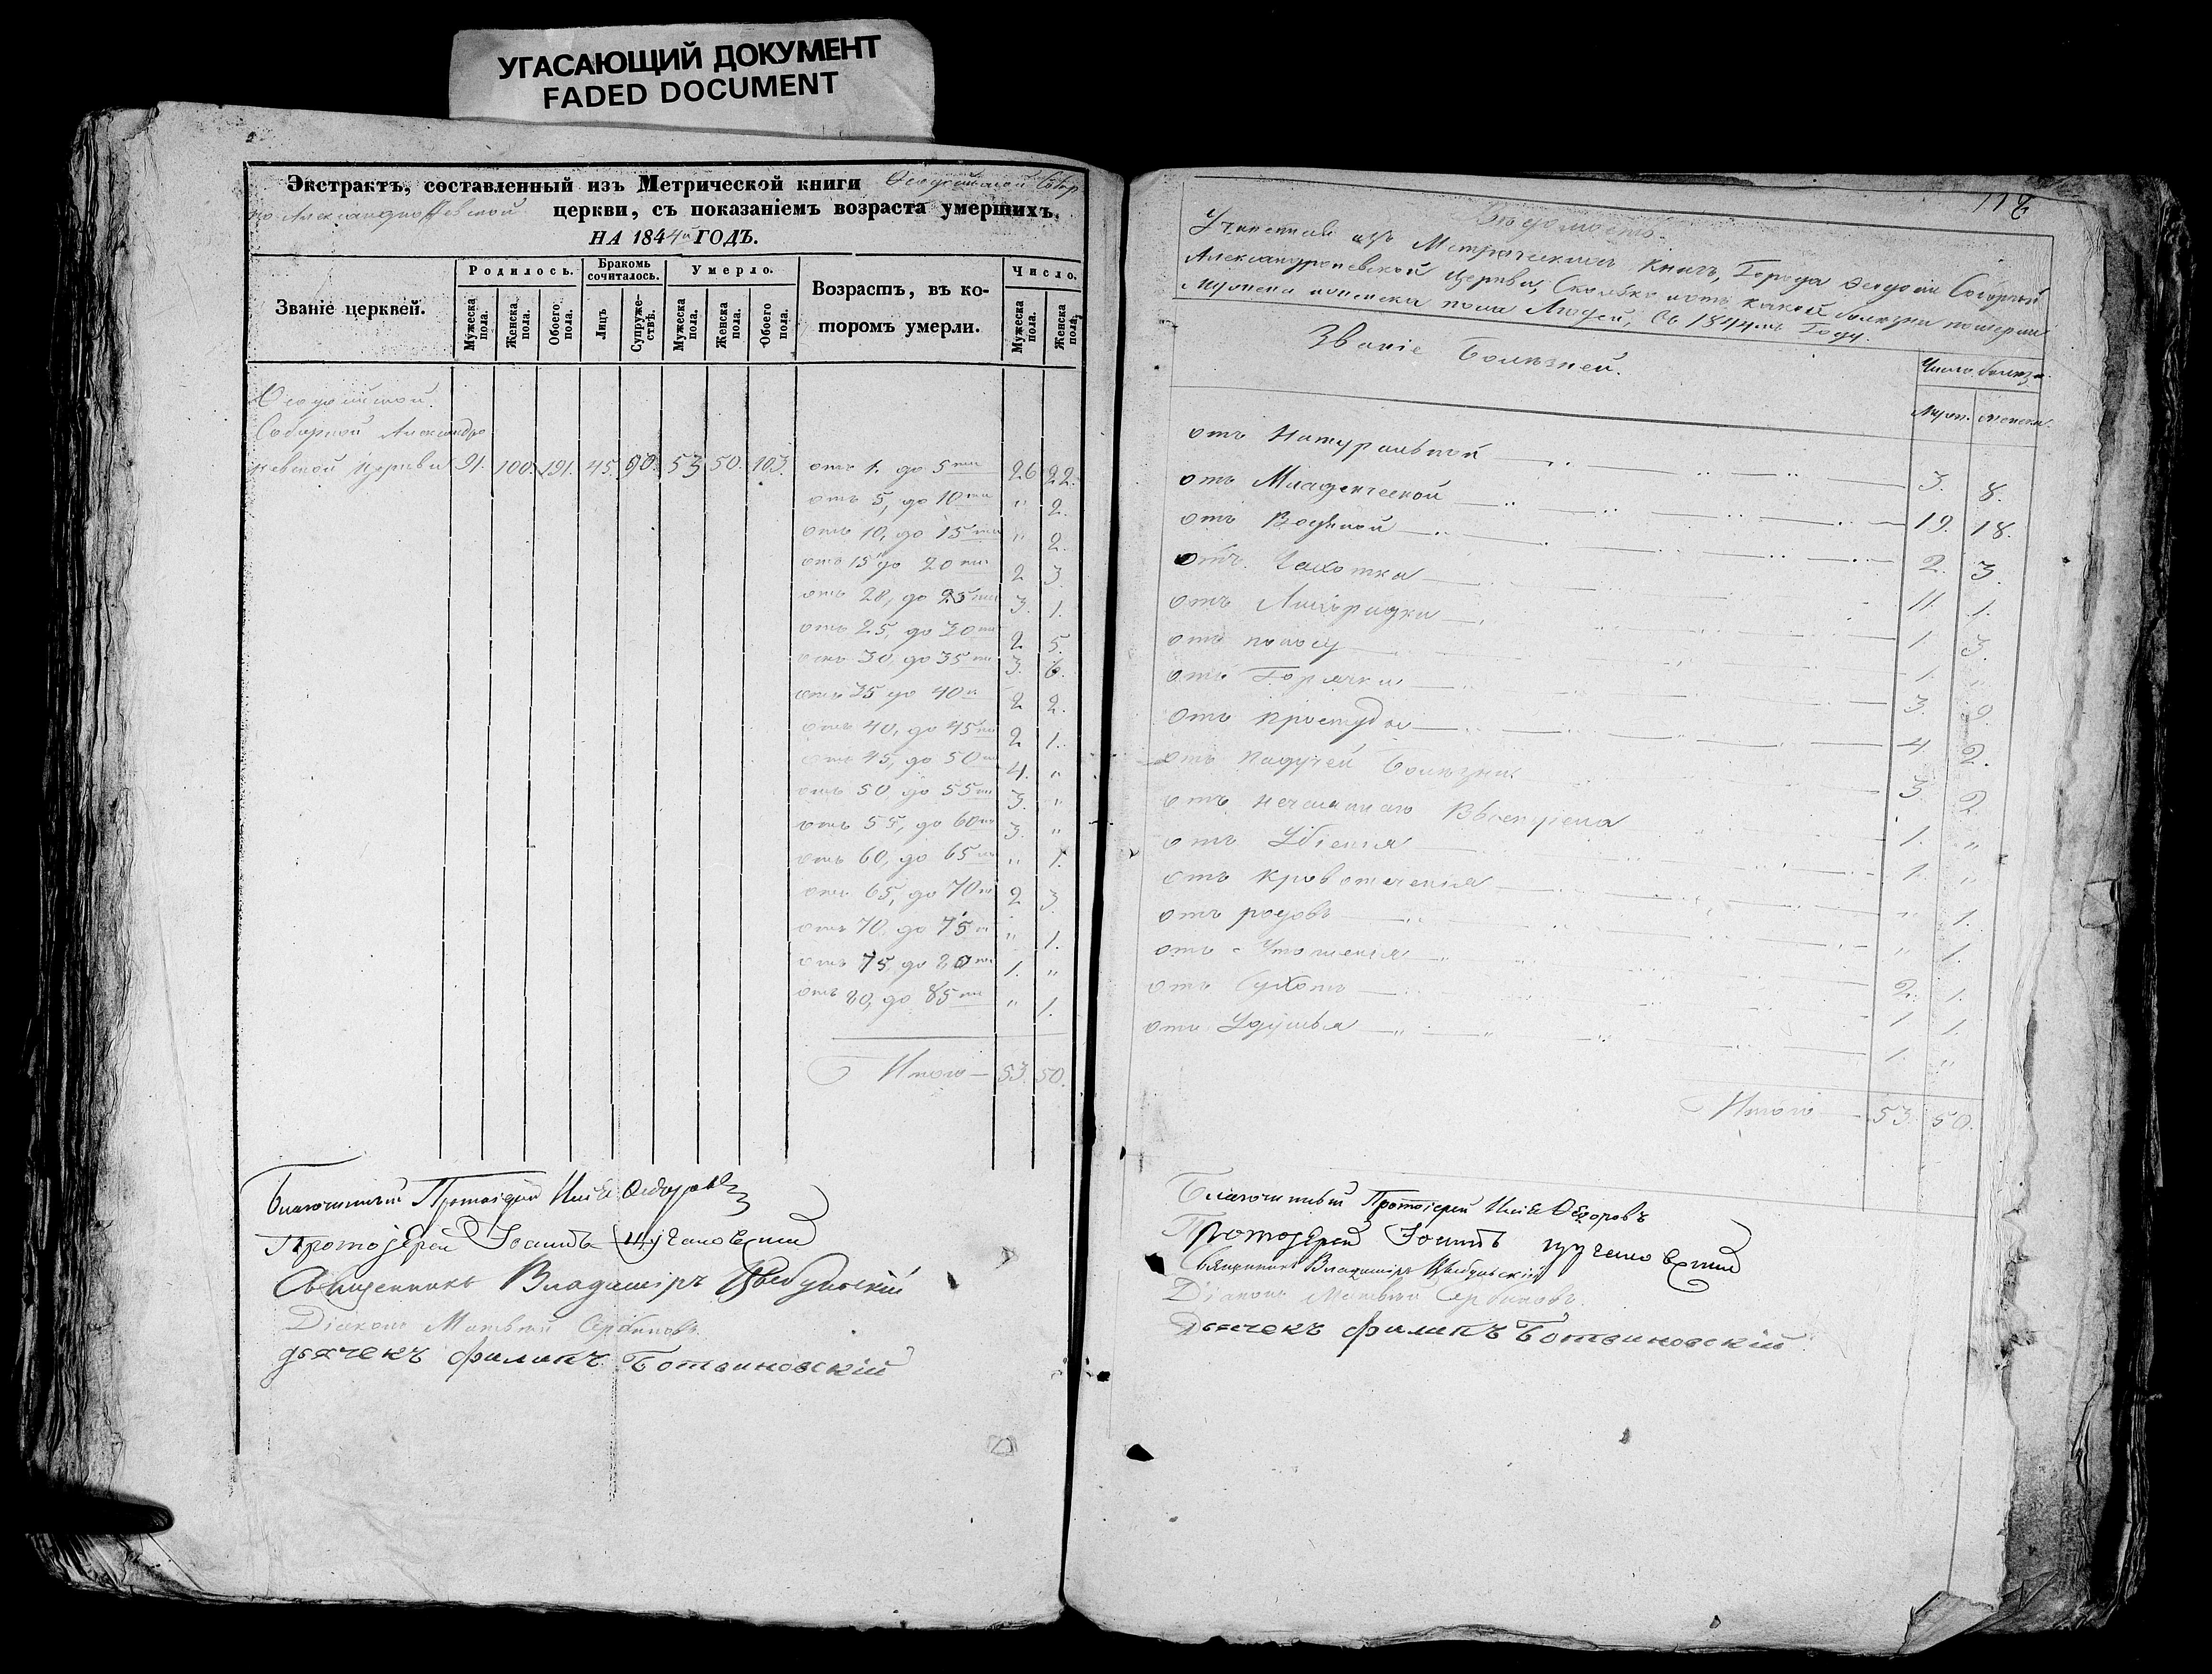 УГАСАЮЩИЙ ДОКУМЕНТ
FADED DOCUMENT
Экстрактъ, составленный изъ Метрической книги Ѳеодосійской Собор
но Александроневской церкви, съ показаніемъ возраста умершихъ.
НА 1844й ГОДЪ.
Званіе церквей.
Родилось.
Бракомъ сочиталось.
Умерло.
Возрастъ, въ котором умерли.
Число.
Мужеска пола. Женска пола. Обоего пола. Лицъ. Супружествъ. Мужеска пола. Женска пола. Обоего пола. Мужеска пола. Женска пола.
Ѳеодосійской
Соборной Александро
невской церкви 91. 100. 191. 45. 90. 53 50. 103. отъ 1. до 5ти 26 22.
отъ 5, до 10ти " 2.
отъ 10, до 15ти " 2.
отъ 15 до 20ти 2 3.
отъ 20, до 25ти 3. 1.
отъ 25, до 30ти 2 5.
отъ 30, до 35ти 3. 6.
отъ 35 до 40ти 2 2.
отъ 40, до 45ти 2 1.
отъ 45, до 50ти 4. "
отъ 50 до 55ти 3. "
отъ 55, до 60ти 3. "
отъ 60, до 65ти " 1.
отъ 65, до 70ти 2 3.
отъ 70, до 75ти " 1.
отъ 75, до 80ти 1. "
отъ 80, до 85ти " 1.
Итого — 53. 50.
Благочинный Протоіерей Илія Ѳедоровъ
Протоіерей Іоаннъ
Священникъ Владиміръ
Діаконъ Матвѣй Сербиновъ
дьячекъ Филипъ Ботвиновскій
Вѣдомость
Учиненная изъ Метрическихъ книгъ, Города Ѳеодосіи Соборной
Александроневской Церкви, Сколько и отъ какой болезни померли
Мужеска и женска пола Людей, въ 1844мъ Году.
Званіе Болезней.
Число болезн.
Муж. женска.
отъ Натуральной 3. 8.
отъ Младенческой 19. 18.
отъ Водяной 2. 3.
отъ Чахотки 11. 1.
отъ Лихорадки 1. 3.
отъ поносу 1. "
отъ Горячки 3. 9.
отъ простуды 4. 2.
отъ падучей болезни 3 2.
отъ нечаяннаго 1. "
отъ Убіенія 1. "
отъ кровотеченія " 1.
отъ родовъ " 1.
отъ 2. 1.
отъ Сухотъ 1 1.
отъ Удушья 1. "
Итого 53. 50.
Благочинный Протоіерей Илія Ѳедоровъ
Протоіерей Іоаннъ
Священникъ Владиміръ
Діаконъ Матвѣй Сербиновъ.
Дьячекъ Филипъ Ботвиновскій